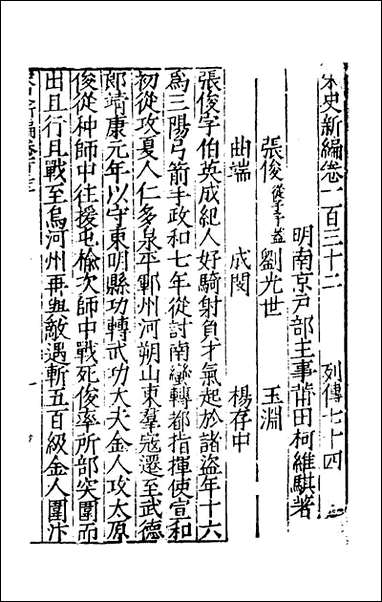 宋史新編卷一百三十二　列傳七十四
明南京戸部主事莆田柯維騏著
張俊從子子蓋　劉光世　王淵
曲端　成閔　楊存中
張俊字伯英成紀人好騎射負才氣起於諸盜年十六
爲三陽弓箭手政和七年從討南蠻轉都指揮使宣和
初從攻夏人仁多泉平鄆州河朔山東羣寇遷至武德
郎靖康元年以守東明縣功轉武功大夫金人攻太原
俊從种師中往援屯榆次師中戰死俊率所部突圍而
出且行且戰至烏河州再與敵遇斬五百級金人圍汴